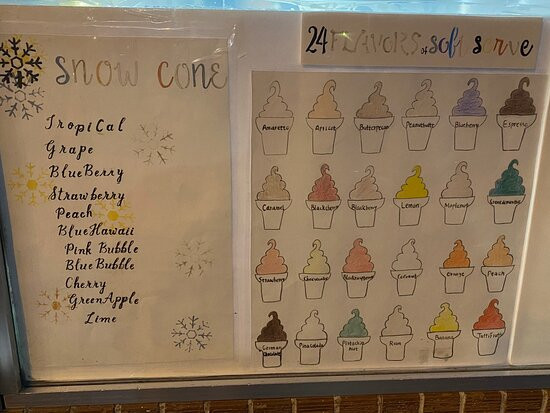 SNOW CONE
Tropical
Grape
BlueBerry
Strawberry
Peach
Blue Hawaii
Pink Bubble
Blue Bubble
Cherry
Green Apple
Lime
24 FLAVORS of soft serve
Amaretto Apricot Butterpecan Peanutbutter Blueberry Espresso
Caramel Blackcherry Blackberry Lemon
Strawberry Cheesecake Coconut Orange Peach
German Chocolate Pina Colada Pistachio nut Rum Banana Tutti Frutti